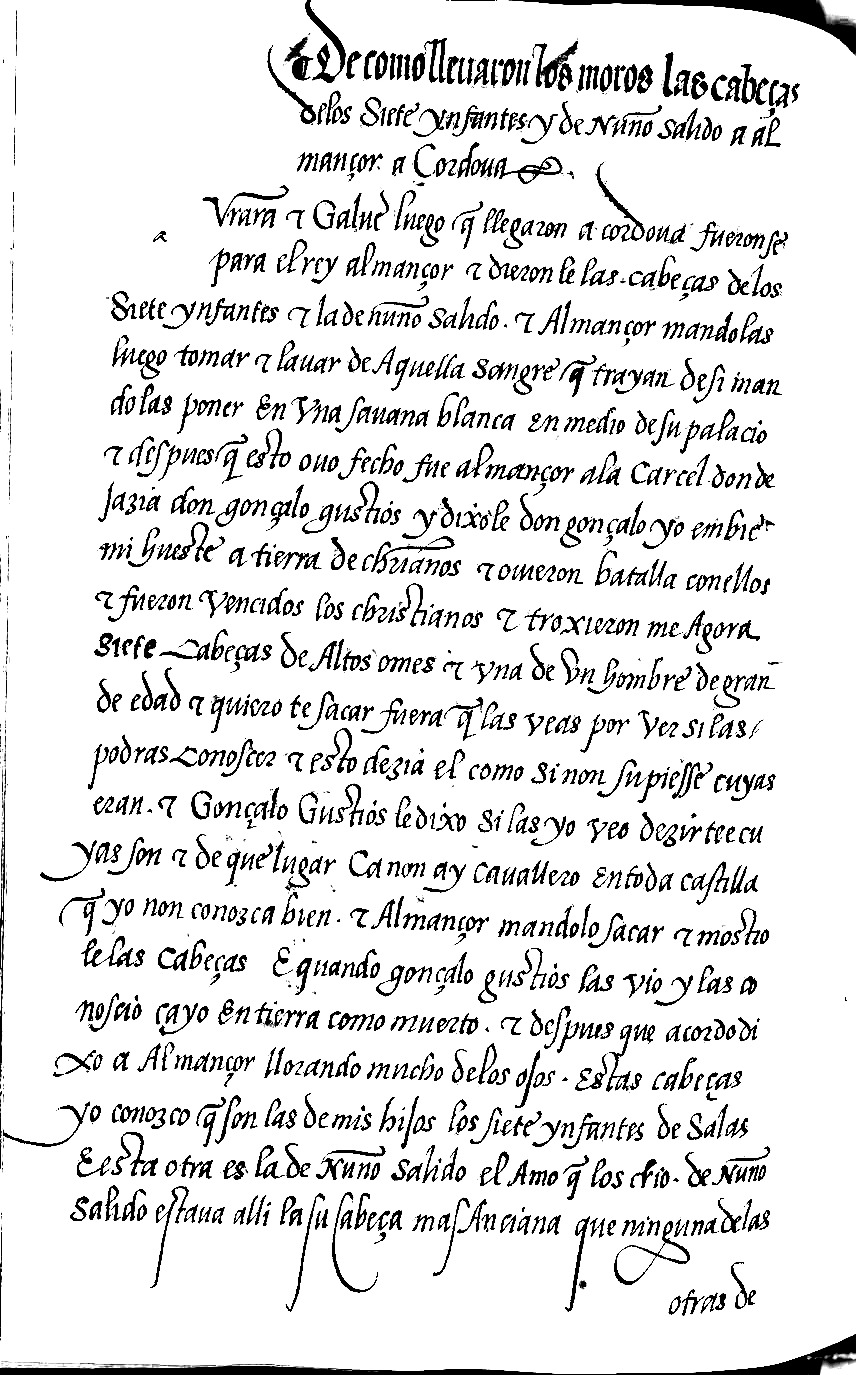 ¶ De como lleuaron los moros las cabeças
delos Siete ynfantes y de Nuño Salido a al
mançor a Cordoua
Vrara ⁊ Galue luego q̃ llegaron a cordoua fueronse
para el rey almançor ⁊ dieron le las cabeças delos
Siete ynfantes ⁊ la de nuño Salido. ⁊ Almançor mandolas
luego tomar ⁊ lauar de Aquella Sangre q̃ trayan desi man
dolas poner En Vna sauana blanca en medio de su palacio
⁊ despues q̃ esto ouo fecho fue almançor ala Carcel donde
Jazia don gonçalo gustios y dixole don gonçalo yo embie
mi hueste a tierra de chrianos ⁊ ouieron batalla conellos
⁊ fueron Vencidos los christianos ⁊ troxieron me Agora
Siete Cabeças de Altos omes ⁊ vna de Vn hombre de gran
de edad ⁊ quiero te sacar fuera q̃ las veas por Ver si las
podras Conoscer ⁊ esto dezia el como Si non supiesse cuyas
eran. ⁊ Gonçalo Gustios le dixo Si las yo veo dezir tee cu
yas son ⁊ de que lugar Ca non ay Cauallero En toda castilla
q̃ yo non conozca bien. ⁊ Almançor mandolo sacar ⁊ mostro
le las Cabeças E quando gonçalo gustios las vio y las co
noscio cayo En tierra como muerto. ⁊ despues que acordo di
xo a Almançor llorando mucho delos ojos. Estas cabeças
yo conozco q̃ son las de mis hijos los siete ynfantes de Salas
E esta otra es la de Nuño Salido el Amo q̃ los crio. de Nuño
Salido estaua alli la su cabeça mas Anciana que ninguna delas
otras de